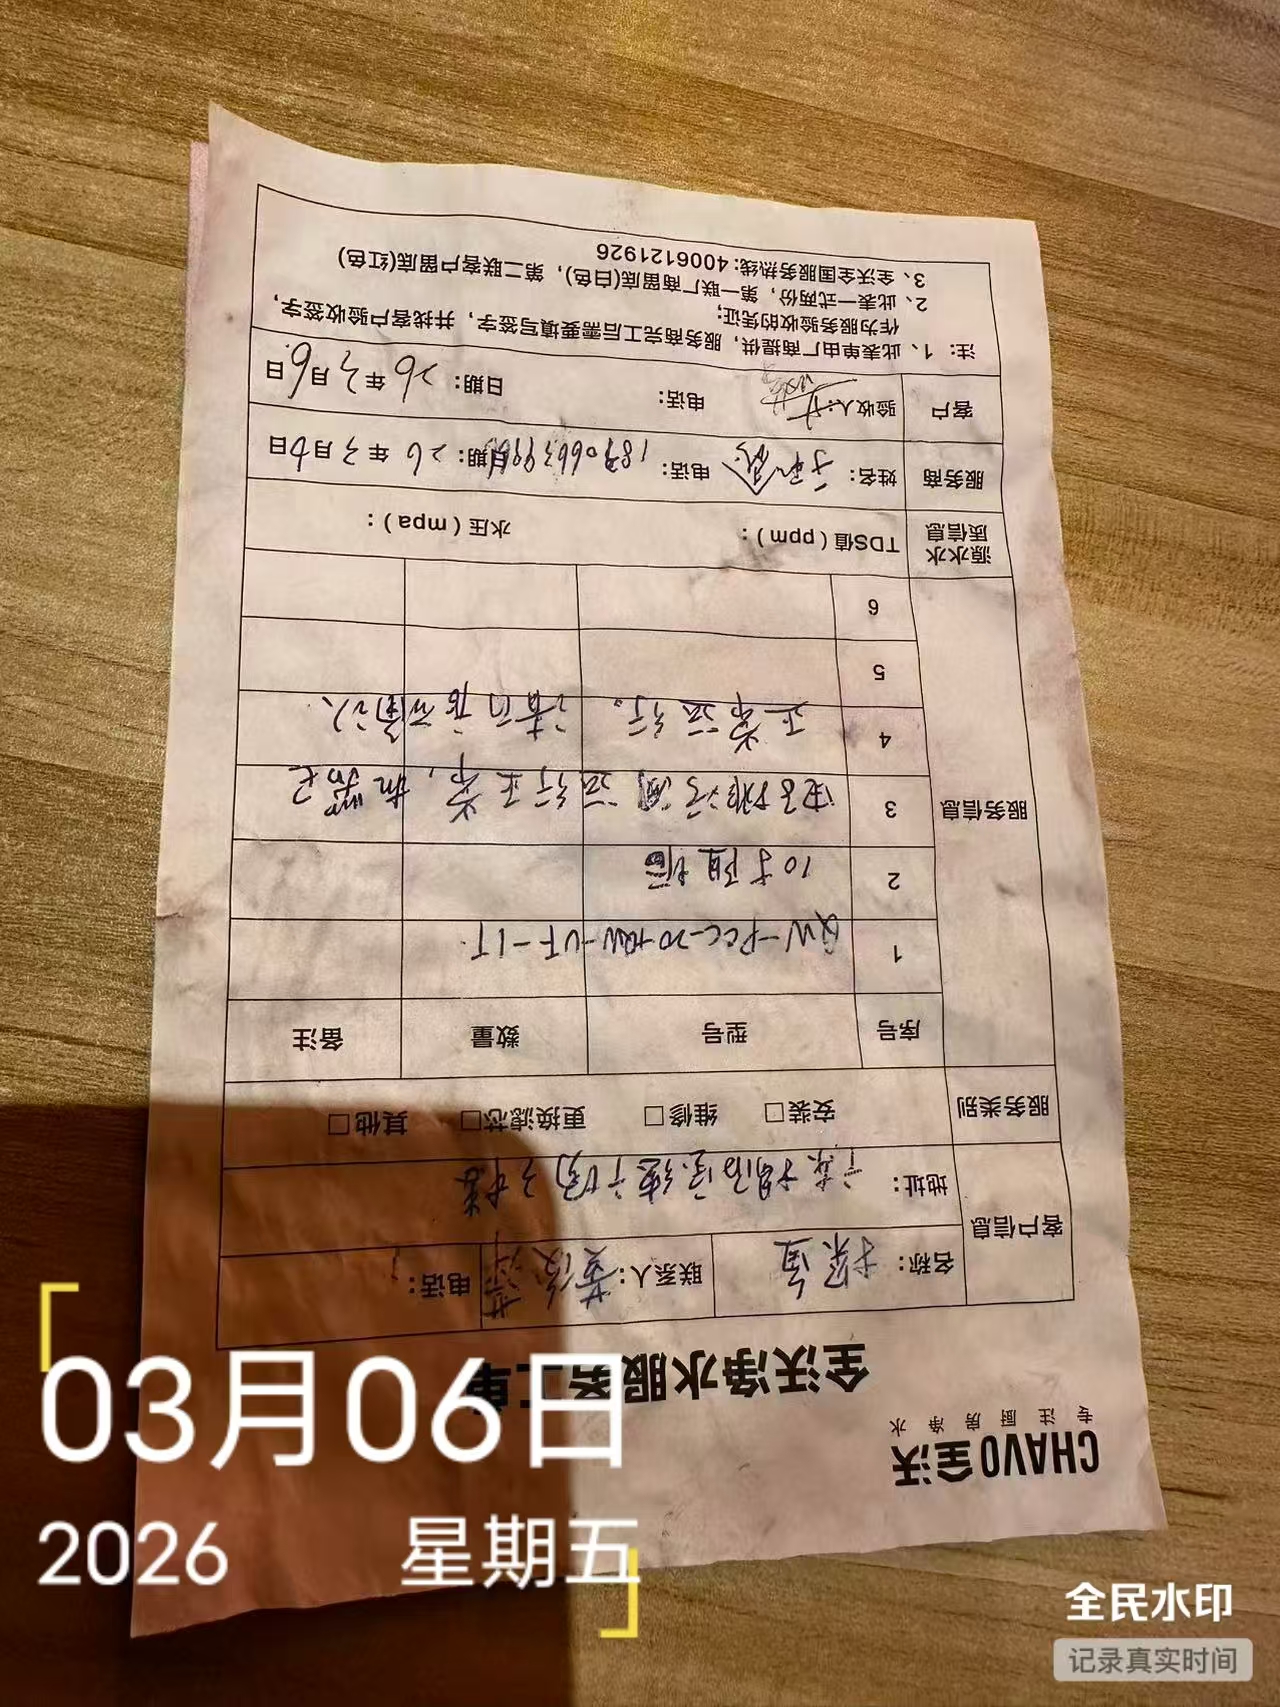 CHAVO全沃
专注厨房净水
全沃净水服务工单
客户信息
名称： 探鱼 联系人： 电话：
地址：
服务类别 安装□ 维修□ 更换滤芯□ 其他□
服务信息
序号 型号 数量 备注
1 QW-PCC-20+QW-UF-1T
2 10寸阻垢
3 更换排污阀 运行正常，机器已
4 正常运行。请门店确认
5
6
源水水质信息 TDS值（ppm）： 水压（mpa）：
服务商 姓名： 电话： 日期：26年3月6日
客户 验收人： 电话： 日期：26年3月6日
注：1、此表单由厂商提供，服务商完工后需要填写签字，并找客户验收签字，
作为服务验收的凭证；
2、此表一式两份，第一联厂商留底(白色)，第二联客户留底(红色)
3、全沃全国服务热线：4006121926
03月06日
2026 星期五
全民水印
记录真实时间